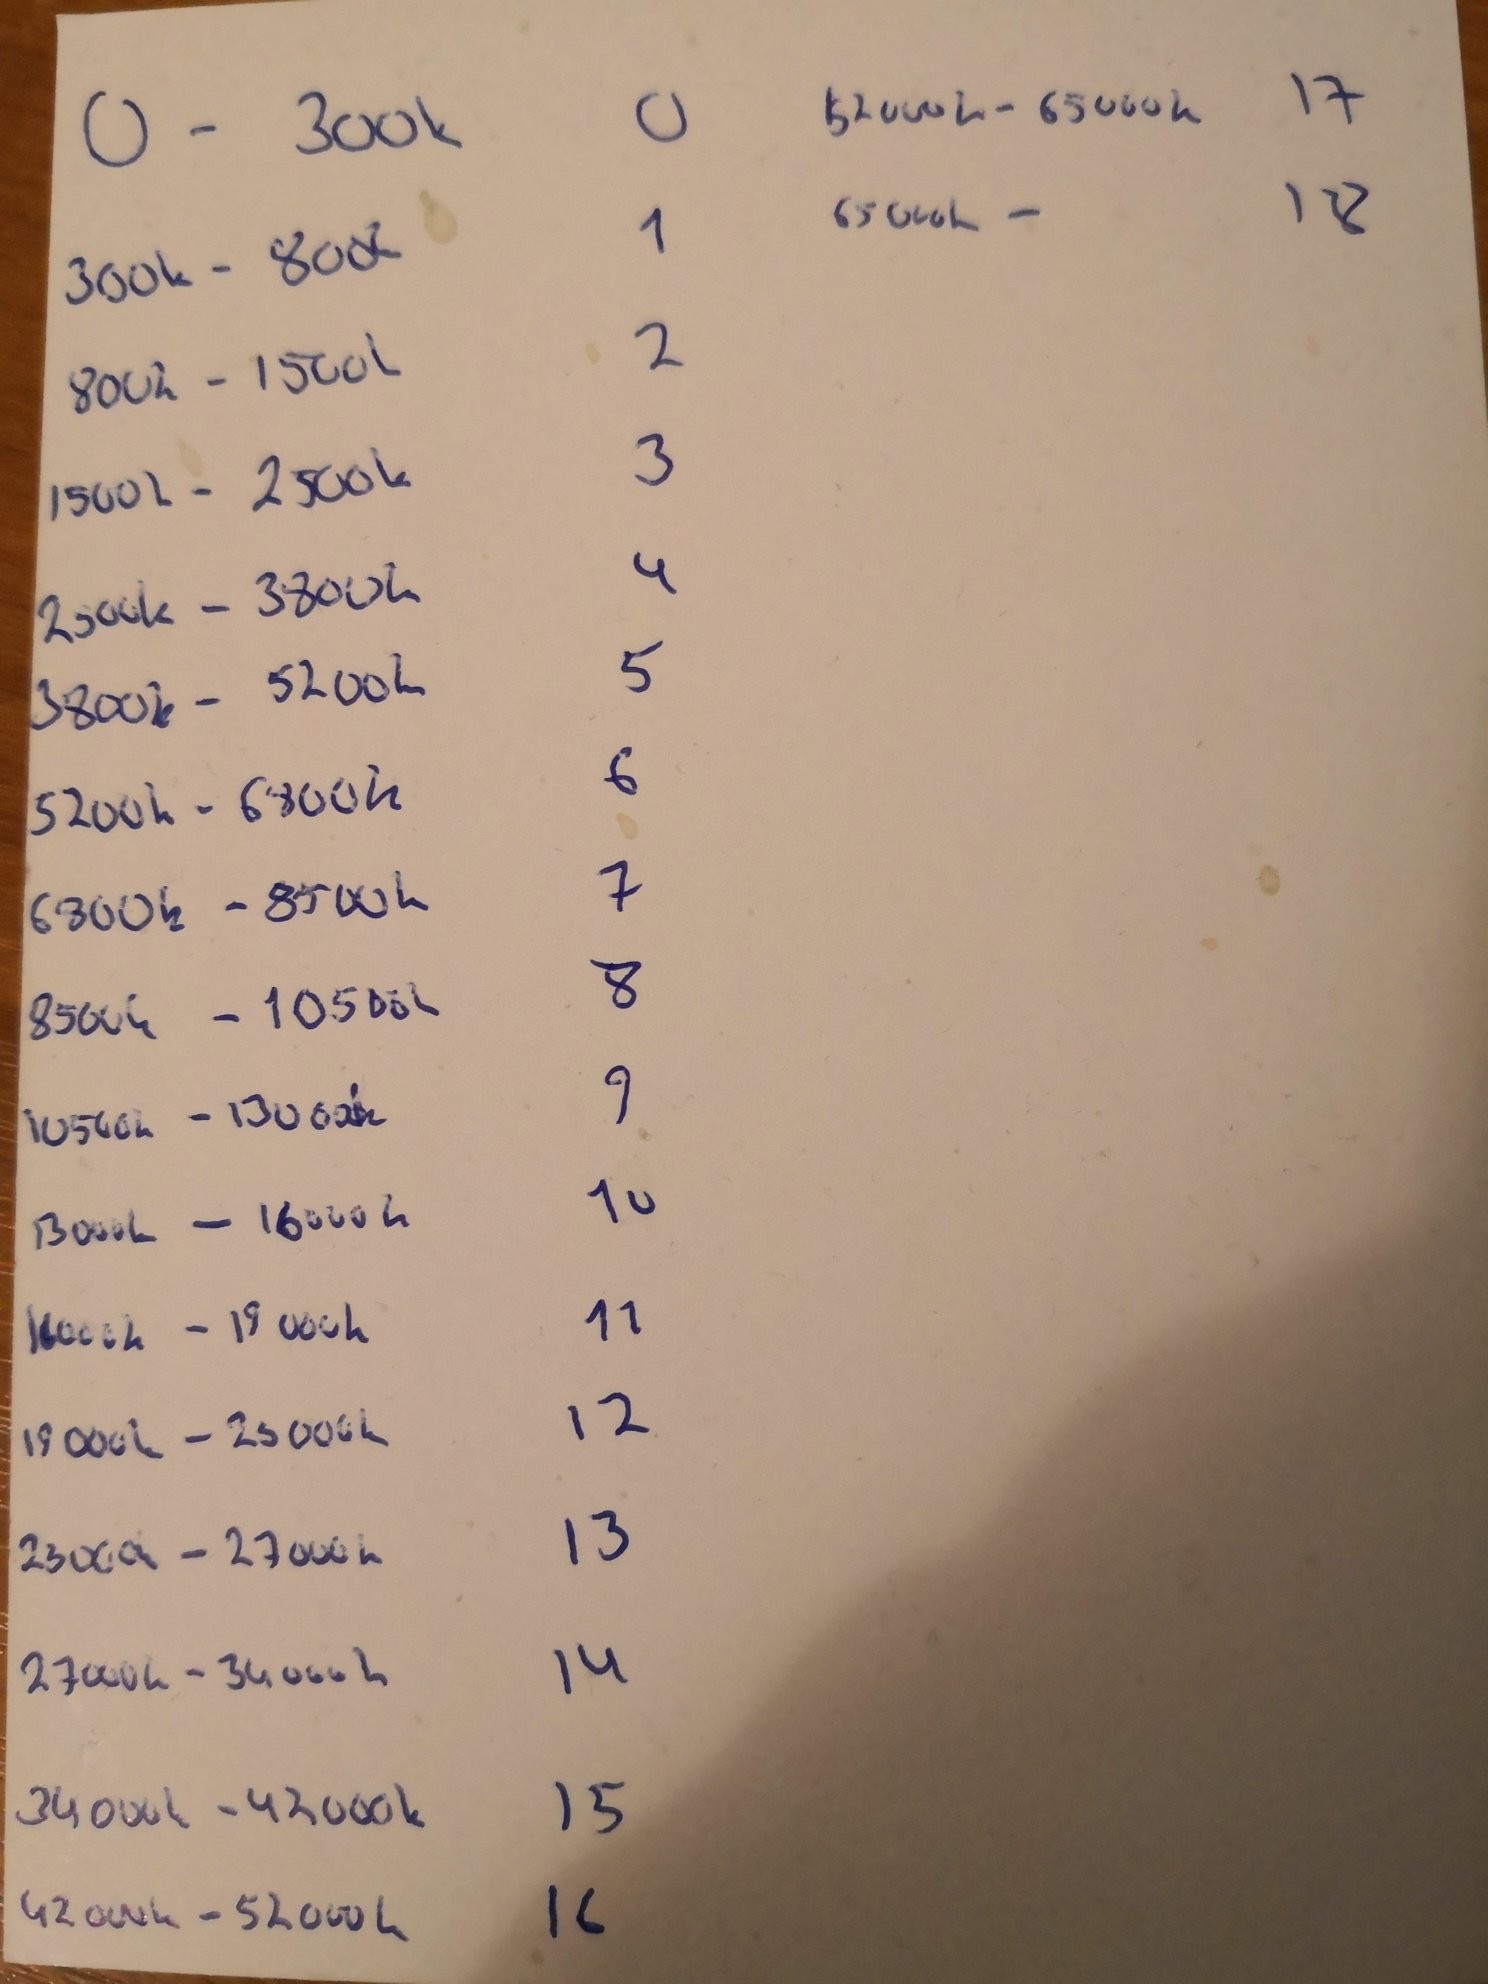 0 - 300k 0
300k - 800k 1
800k - 1500k 2
1500k - 2500k 3
2500k - 3800k 4
3800k - 5200k 5
5200k - 6800k 6
6800k - 8500k 7
8500k - 10500k 8
10500k - 13000k 9
13000k - 16000k 10
16000k - 19000k 11
19000k - 23000k 12
23000k - 27000k 13
27000k - 34000k 14
34000k - 42000k 15
42000k - 52000k 16
52000k - 65000k 17
65000k - 18